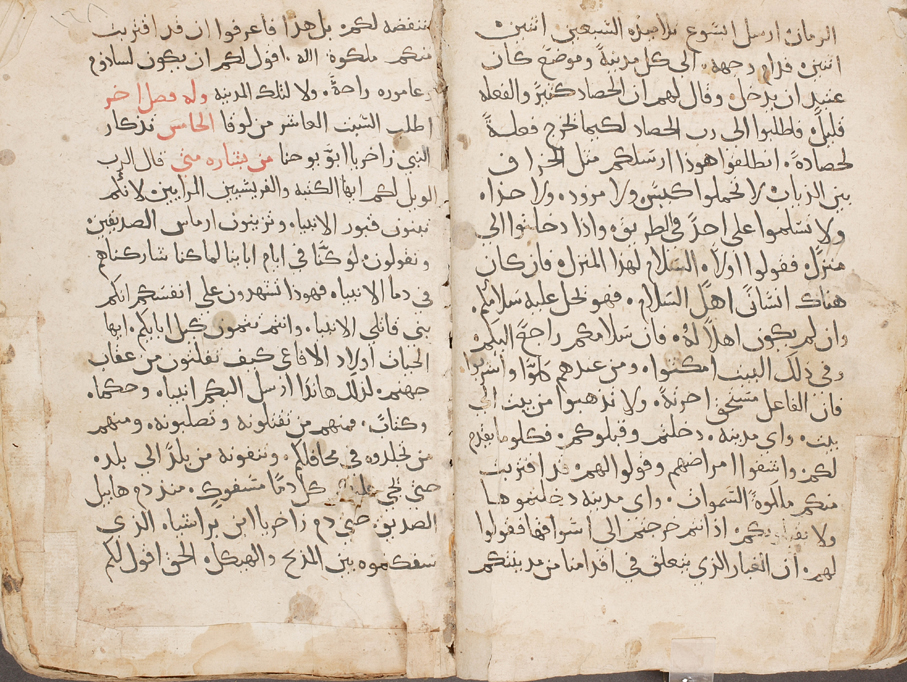 الزمان ارسل ايسوع تلاميذه السبعين اثنين
اثنين قدام وجهه. الى كل مدينة وموضع كان
عتيد ان يدخل. وقال لهم ان الحصاد كثير والفعله
قليل. فاطلبوا الى رب الحصاد لكيما يخرج فعلة
لحصاده. انطلقوا هوذا ارسلكم مثل الخراف
بين الذياب. لا تحملوا كيس ولا مزود. ولا حذا.
ولا تسلموا على احد في الطريق. واذا دخلتوا الى
منزل. فقولوا اولا. السلام لهذا المنزل. فان كان
هناك انسان اهل السلام. فهو يحل عليه سلامكم.
وان لم يكون اهلا له. فان سلامكم راجع اليكم.
وفي ذلك البيت امكثوا. ومن عندهم كلوا واشربوا
فان الفاعل مستحق اجرته. ولا تذهبوا من بيت الى
بيت. واي مدينه. دخلتم وقبلوكم. فكلوا ما يقدم
لكم واشفوا امراضهم وقولوا لهم. قد اقتربت
منكم ملكوة السموات. واي مدينه دخلتموها
ولا يقبلوكم. اذا انتم خرجتم الى اسواقها فقولوا
لهم. ان الغبار الذي يتعلق في اقدامنا من مدينتكم
ننفضه لكم. بل هذا فاعرفوا ان قد اقتربت
منكم ملكوة الله. اقول لكم ان يكون لسادوم
وعاموره راحة. ولا لتلك المدينه وله فصل اخر
اطلب السبت العاشر من لوقا الخامس تذكار
النبي زاخريا ابو يوحنا من بشاره متى قال الرب
الويل لكم ايها الكتبه والفريسيين المرايين. لانكم
تبنون قبور الانبياء. وتزينون ارماس الصديقين
وتقولون. لو كنا في ايام اباينا لما كنا شاركناهم
في دما الانبياء. فهوذا تشهدون على انفسكم انكم
بني قاتلي الانبياء. وانتم تتمون كيل ابايكم. ايها
الحيات اولاد الافاعي كيف تفلتون من عقاب
جهنم. لذلك هانذا ارسل اليكم انبياء. وحكما.
وكتاب. فمنهم من تقتلونه وتصلبونه. ومنهم
من تجلدوه في محافلكم. وتنفونه من بلد الى بلد.
حتى يجي عليكم كل دما مسفوك. منذ دم هابيل
الصديق. حتى دم زاخريا ابن براشياه الذي
سفكتموه بين المذبح والهيكل. الحق اقول لكم